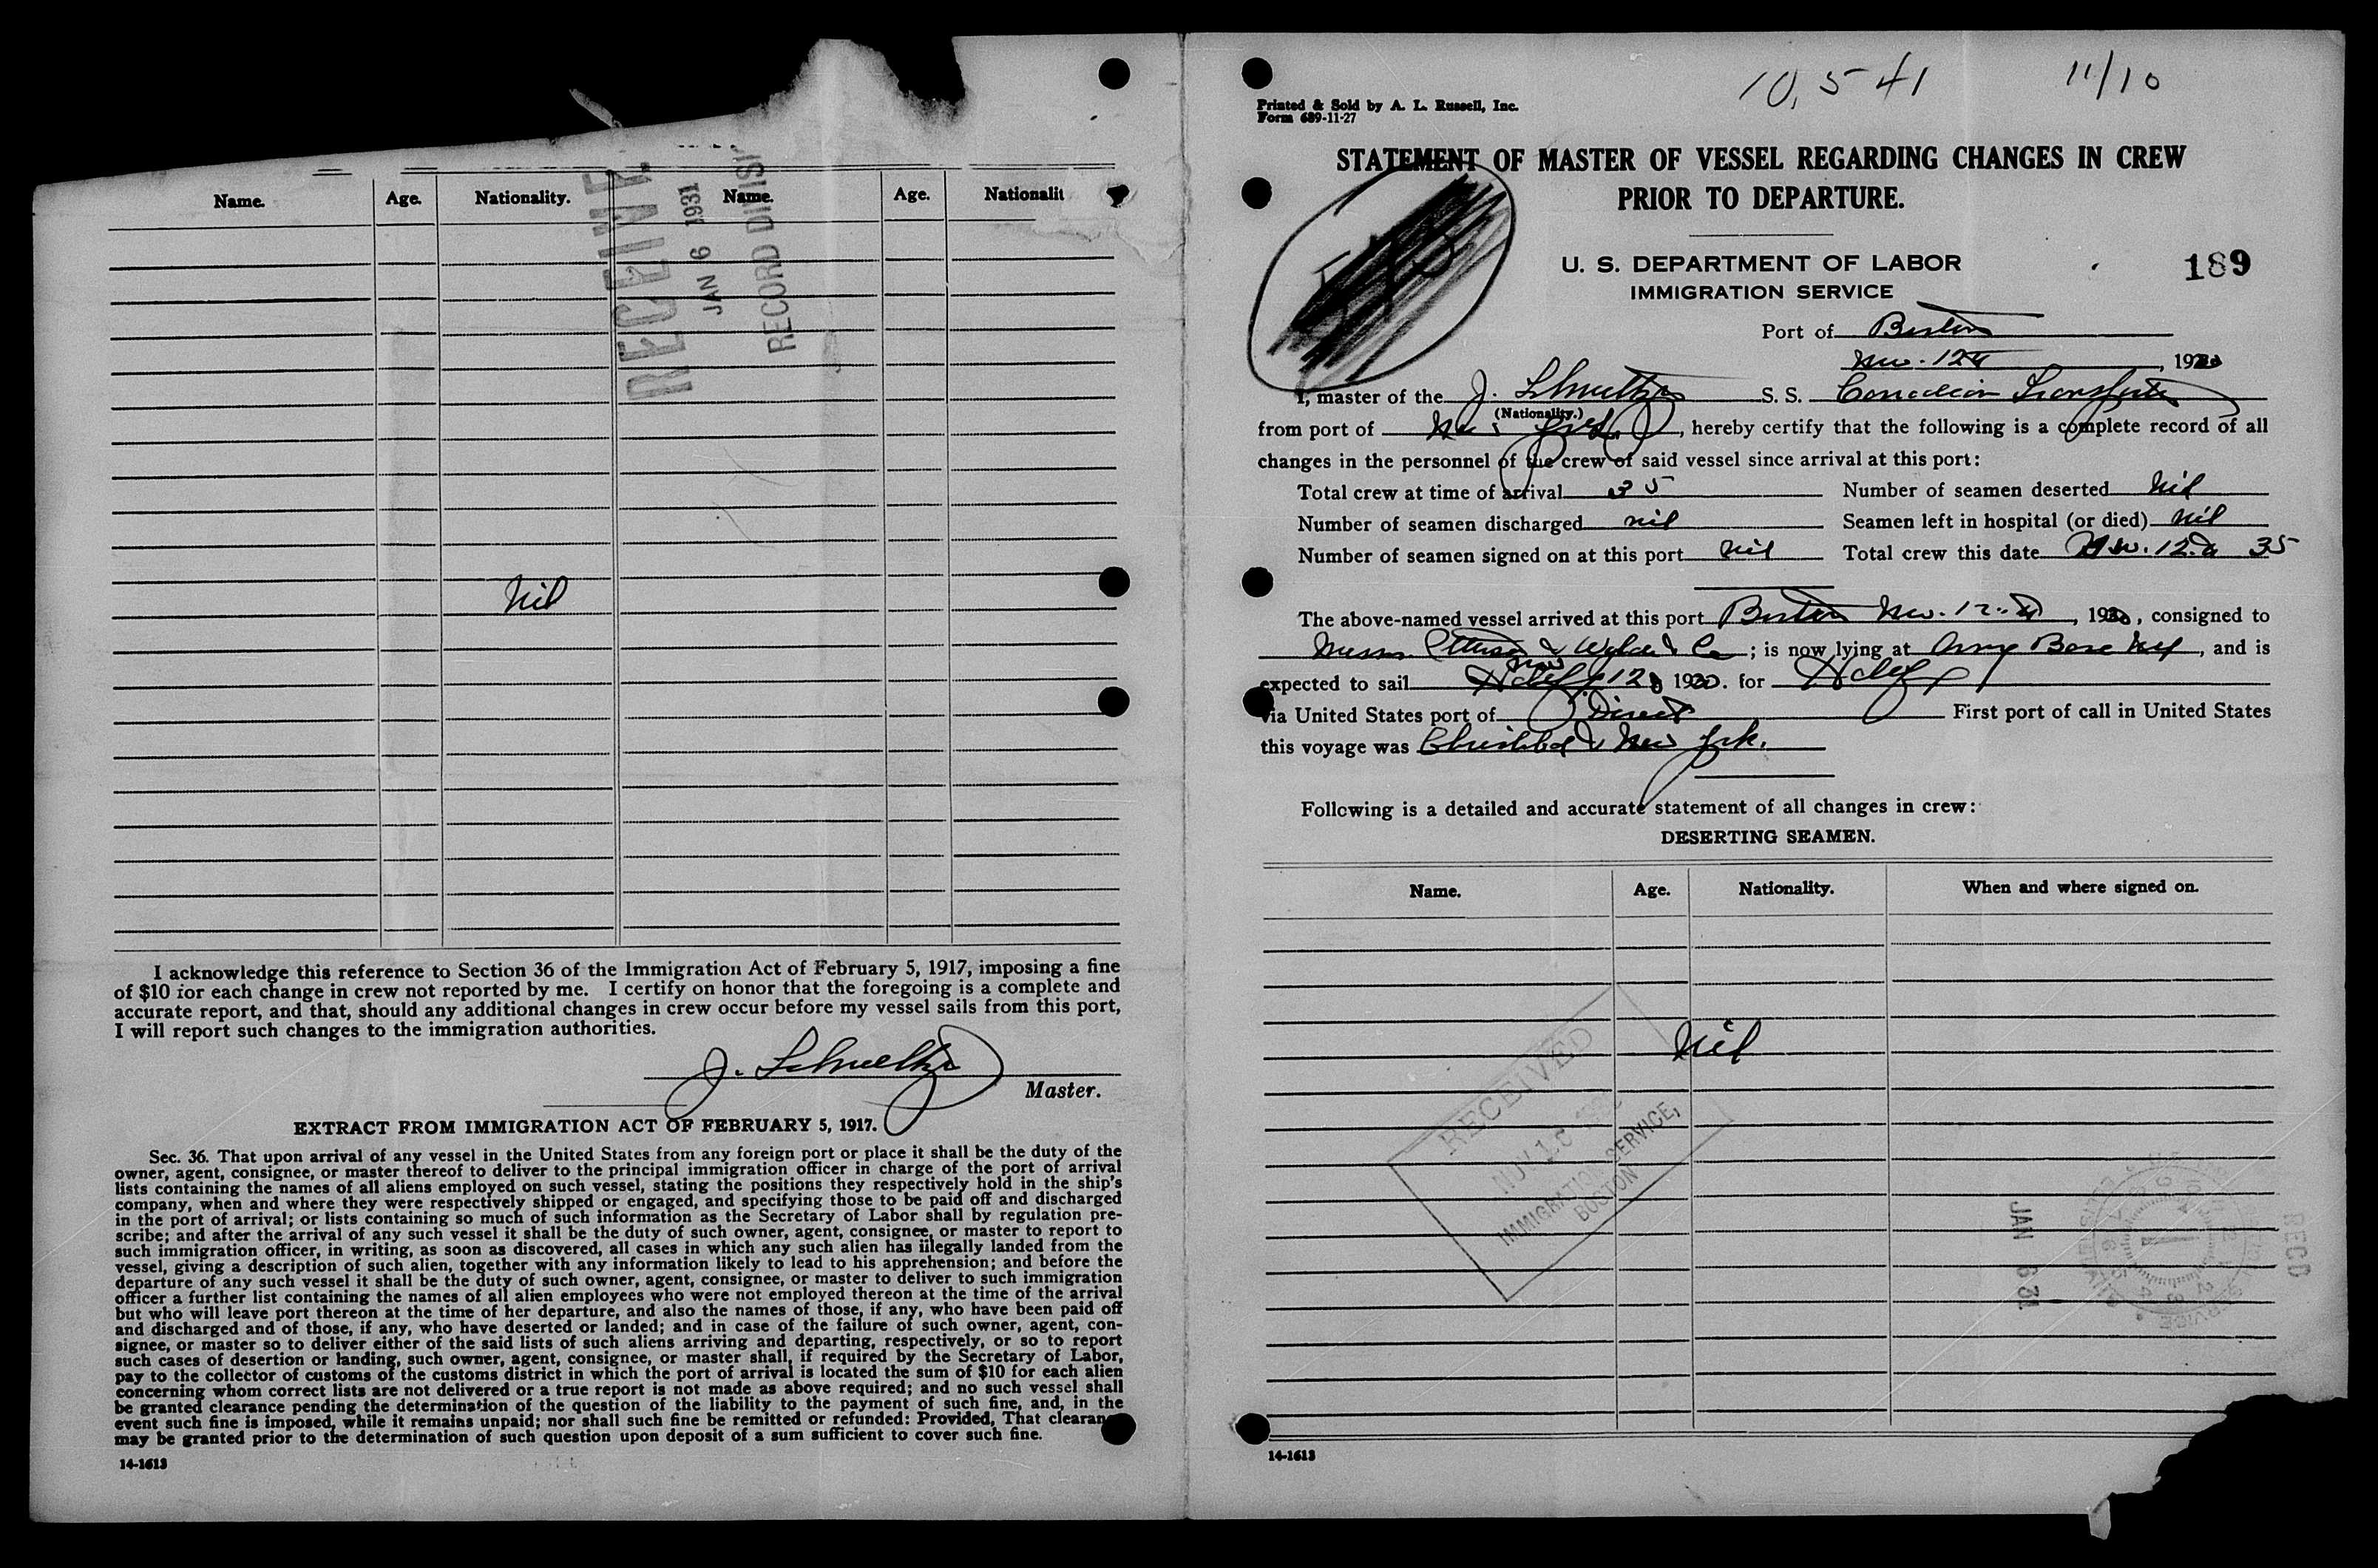 Name. Age. Nationality. Name. Age. Nationalit
RECEIVE
JAN 6 1931
RECORD DIVISI
Nil
I acknowledge this reference to Section 36 of the Immigration Act of February 5, 1917, imposing a fine
of $10 for each change in crew not reported by me. I certify on honor that the foregoing is a complete and
accurate report, and that, should any additional changes in crew occur before my vessel sails from this port,
I will report such changes to the immigration authorities.
J.
Master.
EXTRACT FROM IMMIGRATION ACT OF FEBRUARY 5, 1917.
Sec. 36. That upon arrival of any vessel in the United States from any foreign port or place it shall be the duty of the
owner, agent, consignee, or master thereof to deliver to the principal immigration officer in charge of the port of arrival
lists containing the names of all aliens employed on such vessel, stating the positions they respectively hold in the ship's
company, when and where they were respectively shipped or engaged, and specifying those to be paid off and discharged
in the port of arrival; or lists containing so much of such information as the Secretary of Labor shall by regulation pre-
scribe; and after the arrival of any such vessel it shall be the duty of such owner, agent, consignee, or master to report to
such immigration officer, in writing, as soon as discovered, all cases in which any such alien has illegally landed from the
vessel, giving a description of such alien, together with any information likely to lead to his apprehension; and before the
departure of any such vessel it shall be the duty of such owner, agent, consignee, or master to deliver to such immigration
officer a further list containing the names of all alien employees who were not employed thereon at the time of the arrival
but who will leave port thereon at the time of her departure, and also the names of those, if any, who have been paid off
and discharged and of those, if any, who have deserted or landed; and in case of the failure of such owner, agent, con-
signee, or master so to deliver either of the said lists of such aliens arriving and departing, respectively, or so to report
such cases of desertion or landing, such owner, agent, consignee, or master shall, if required by the Secretary of Labor,
pay to the collector of customs of the customs district in which the port of arrival is located the sum of $10 for each alien
concerning whom correct lists are not delivered or a true report is not made as above required; and no such vessel shall
be granted clearance pending the determination of the question of the liability to the payment of such fine, and, in the
event such fine is imposed, while it remains unpaid; nor shall such fine be remitted or refunded: Provided, That clearan
may be granted prior to the determination of such question upon deposit of a sum sufficient to cover such fine.
14-1613
10,541 11/10
Printed & Sold by A. L. Russell, Inc.
Form 689-11-27
STATEMENT OF MASTER OF VESSEL REGARDING CHANGES IN CREW
PRIOR TO DEPARTURE.
U. S. DEPARTMENT OF LABOR
IMMIGRATION SERVICE
189
Port of Boston
Nov. 12th, 1930
I, master of the J. S. S. Canadian
(Nationality.)
from port of New York, hereby certify that the following is a complete record of all
changes in the personnel of the crew of said vessel since arrival at this port:
Total crew at time of arrival 35 Number of seamen deserted Nil
Number of seamen discharged nil Seamen left in hospital (or died) Nil
Number of seamen signed on at this port Nil Total crew this date Nov. 12th 35
The above-named vessel arrived at this port Boston Nov. 12th, 1930, consigned to
Messrs. & Co; is now lying at Army Base, and is
expected to sail Nov 12 1930. for
via United States port of Direct First port of call in United States
this voyage was & New York.
Following is a detailed and accurate statement of all changes in crew:
DESERTING SEAMEN.
Name. Age. Nationality. When and where signed on.
Nil
RECEIVED
NOV
IMMIGRATION SERVICE,
BOSTON
JAN 6 31
RECD
14-1613